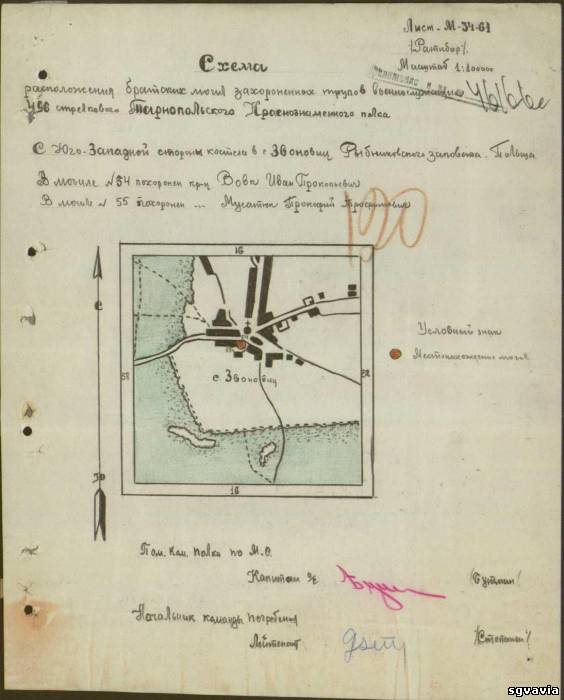 Лист-М-34-61
/Ратибор/
Масштаб 1:100000
Схема
расположения братских могил захороненных трупов военнослужащих
456 стрелкового Тарнопольского Краснознаменного полка
С Юго-Западной стороны костела в с Звоновиц Рыбниковского заповета. Польша
В могиле №54 похоронен кр-ц Вовк Иван Прокопьевич
В могиле № 55 похоронен ... Прокофий
120
16
С
Условный знак
Местонахождение могил
58
58
с Звоновиц
Ю
16
Пом. Ком. полка по М.О.
Капитан
Начальник команды погребения
Лейтенант
/Степанов/
sgvavia